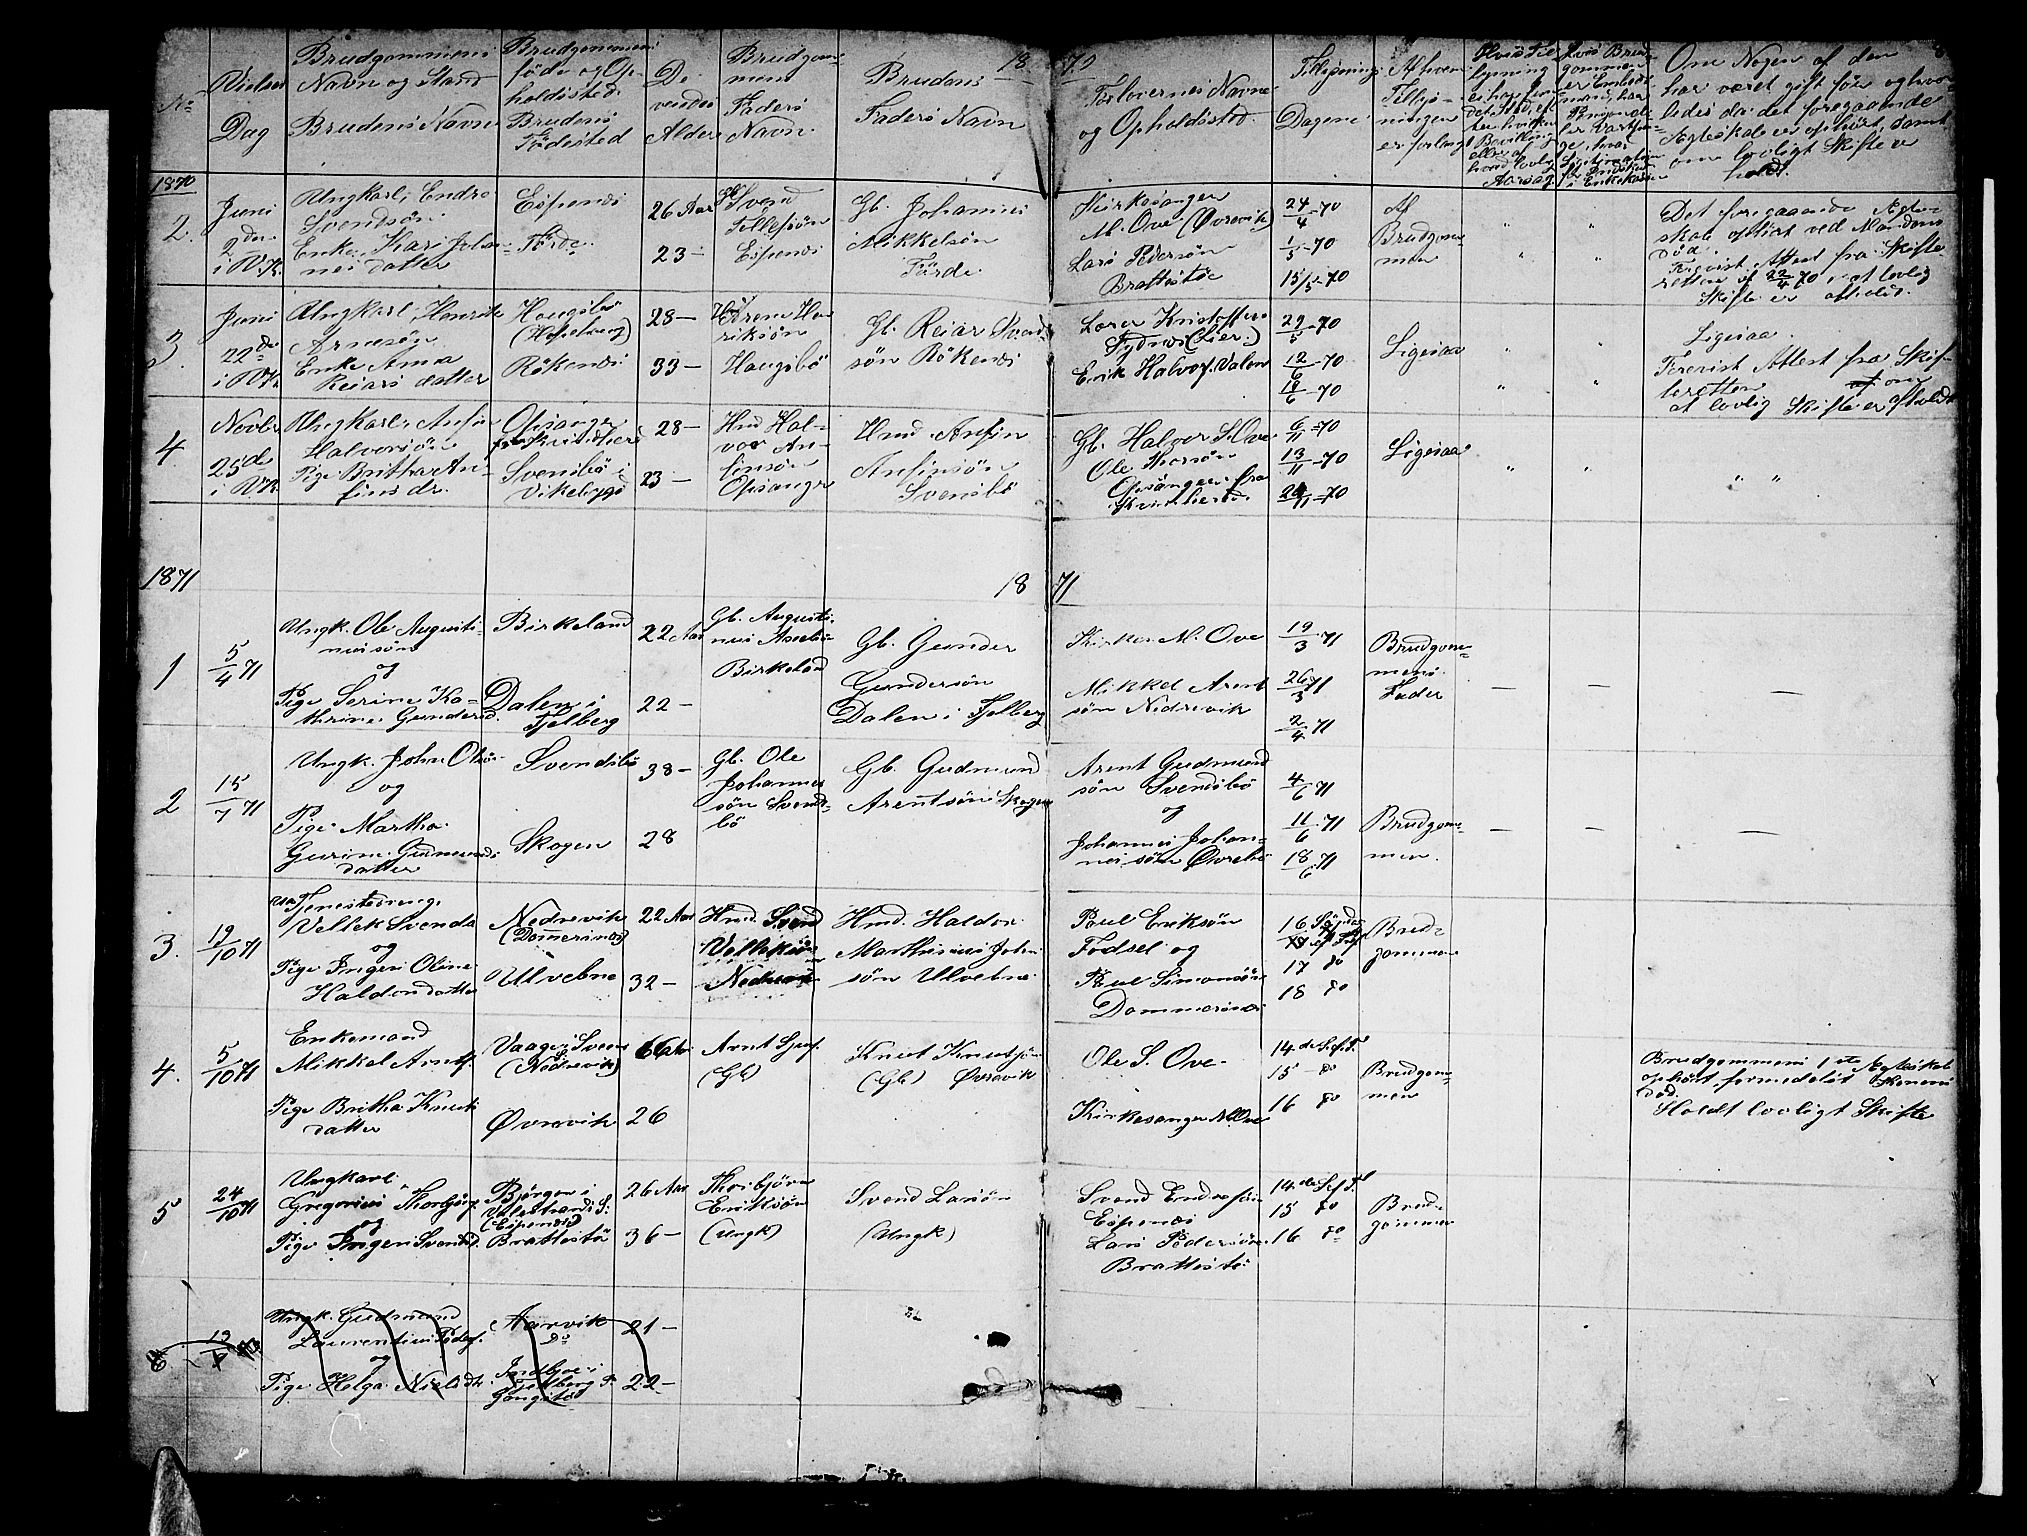 18 70
No
Vielses
Dag
Brudgommens
Navn og Stand
Brudens Navn
Brudgommens
føde og Op-
holdssted
Brudens
Fødested
De
vendes
Alder
Brudgom-
mens
Faders
Navn.
Brudens
Faders Navn
Forlovernes Navne
og Opholdssted.
Tillysnings
Dagene
Af hvem
Tillys-
ningen
er forlangt
Om Nogen af dem
har været gift før og hvor-
ledes da det foregaaende
Ægteskab er ophört, samt
om lovligt Skifte er
holdt.
1870
2.
Juni
2den
i V.K.
Ungkarl, Endre
Svendsön
Enke, Kari Johan-
nes datter
Espenes
Förde
26 Aar
23 -
Gb. Svend
Tillefsön
Espenes
Gb. Johannes
Mikkelsön
Förde.
Kirkesanger
M. Ove (Øvrevik)
Lars Pedersön
Brattestöe
24/4 -70
1/5 -70
15/5 -70
Af
Brudgom-
men
" "
" "
Det foregaaende Ægte-
skab ophört ved Mandens
död.
Forevist Attest fra Skifte
retten af 22/4 70, at lovlig
Skifte er afholdt.
3.
Juni
22de
i V.K.
Ungkarl, Henrik
Arnesön
Enke Anna
Reiars datter
Haugsbö
Rökenes
28 -
33 -
riksön
Haugsbö
Gb. Reiar Svend-
sön Rökenes
Fydnes (Lier.)
Erik Halvors. Valen
29/5 -70
12/6 -70
19/6 -70
Ligesaa
" "
" "
Ligesaa
Forevist Attest fra Skif-
teretten om
at lovlig Skifte er afholdt
4.
Novbr
25de
i V.K.
Ungkarl, Anfin
Halvorsön
Pige Britha An-
fins dr.
Opsanger
Svensbö i
Vikebygd
28 -
23 -
Hmd Hal-
vor An-
finsön
Opsanger
Hmd. Anfin
Anfinsön
Svensbö
Gb. Halvor S. Ove
Ole Thorsön
Opsanger fra
Kvinherred
6/11 -70
13/11 -70
20/11 -70
Ligesaa
" "
" "
1871
18 71
1
5/4 71
Ungk. Ole Augusti-
nussön
og
Pige Serine Ka-
thrine Gundersd.
Birkeland
Dalen i
Fjelberg
22 Aar
22 -
Gb. Augusti-
nus
Birkeland
Gb. Gunder
Gundersön
Dalen i Fjelberg
Kirkes. M. Ove
Mikkel Arent
sön Nedrevik
19/3 71
26/3 71
2/4 71
Brudgom-
mens
Fader
- - -
2
15/7 71
Ungk. John Olsön
og
Pige Martha
Gurine Gudmunds
datter
Svendsbö
Skogen
38 -
28
Gb. Ole
Johannes
sön Svends-
bö
Gb. Gudmund
Arentsön Skogen
Arent Gudmund
sön Svensbö
og
Johannes Johan-
nes sön Øvrebö
4/6 71
11/6 71
18/6 71
Brudgom-
men.
- - -
3.
19/10 71
Tjenestedreng
Vellek Svends.
og
Pige Inger Oline
Haldordatter
Nedrevik
(Dommersnes)
Ulvebne
22 Aar
32 -
Hmd. Svend
Velleksön
Nedrevik
Hmd. Haldor
Marthinus John
sön Ulvebne
Poul Eriksön
Fodsel og
Poul Simonsön
Dommersnes
16
17 do
18 do
Brud-
gommen
4.
5/10 71
Enkemand
Mikkel Arntss.
Pige Britha Knuts
datter
Vaage i Sveen
(Nedrevik)
Øvrevik
66 Aar
26
Arnt Sjurs.
(Gb)
Knut Knutsön
(Gb) Øvrevik
Ole S. Ove
Kirkesanger M Ove
14de S. ef. T.
15 - do
16 do
Brudgom-
men
Brudgommens 1ste Ægteskab
ophört formedelst Konens
Död.
Holdt lovligt Skifte
5
24/10 71
Ungkarl
Gregorius Thorbjörns.
og
Pige Inger Svendsd.
Björgen i
Valestrands S:
(Espenes)
Brattestö
26 Aar
36 -
Thorbjörn
Eriksön
(Ungk)
Svend Larsön
(Ungk)
Svend Endresön
Espenes
Lars Pedersön
Brattestö
14de S. ef. T.
15 do
16 do
Brud-
gommen
6
Ungk. Gudmund
Laurentius Peders.
og
Pige Helga Nielsdtr.
Aarvik
do
21 -
22 -